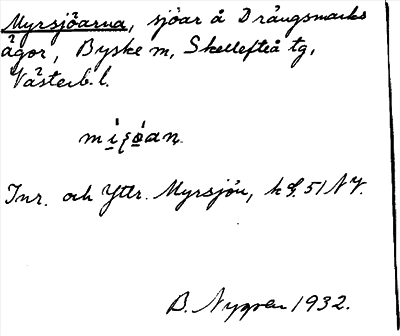 Myrsjöarna, sjöar å Drängsmarks
ägor, Byske sn, Skellefteå tg,
Västerb. l.
Inr. och Yttr. Myrsjön, k 51 NV.
B. Nyman 1932.